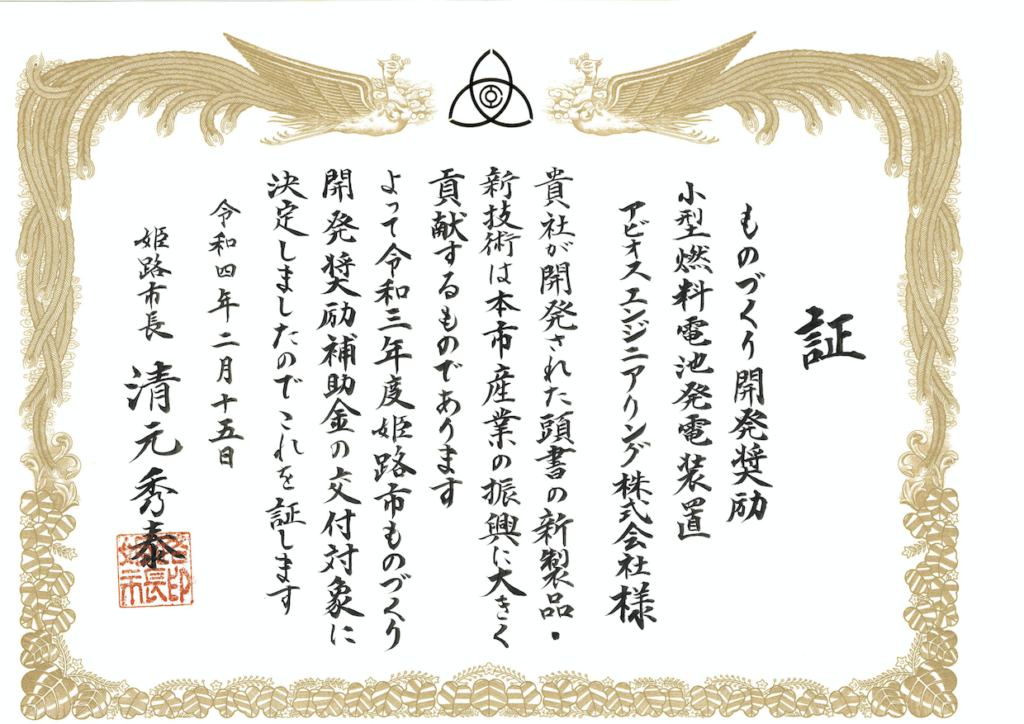 証
ものづくり開発奨励
小型燃料電池発電装置
アビオスエンジニアリング株式会社様
貴社が開発された頭書の新製品・
新技術は本市産業の振興に大きく
貢献するものであります
よって令和三年度姫路市ものづくり
開発奨励補助金の交付対象に
決定しましたのでこれを証します
令和四年二月十五日
姫路市長 清元秀泰